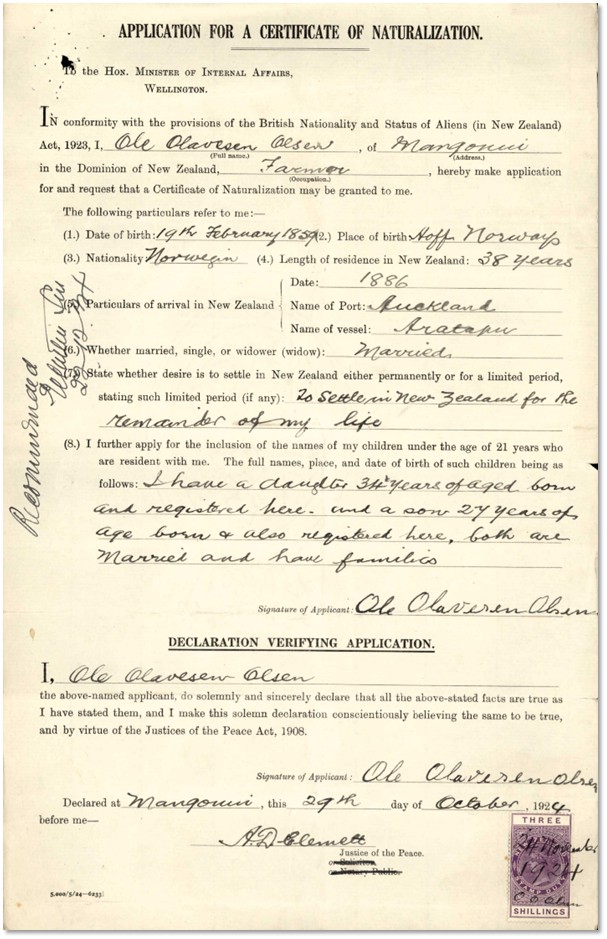 APPLICATION FOR A CERTIFICATE OF NATURALIZATION.
To the HON. MINISTER OF INTERNAL AFFAIRS,
WELLINGTON.
IN conformity with the provisions of the British Nationality and Status of Aliens (in New Zealand)
Act, 1923, I, Ole Olavesen Olsen, of Mangonui
(Full name.) (Address.)
in the Dominion of New Zealand, Farmer, hereby make application
(Occupation.)
for and request that a Certificate of Naturalization may be granted to me.
The following particulars refer to me:—
(1.) Date of birth: 19th February 1859 (2.) Place of birth Hoff Norway
(3.) Nationality Norwegin (4.) Length of residence in New Zealand: 38 years
Date: 1886
(5.) Particulars of arrival in New Zealand Name of Port: Auckland
Name of vessel: Aratapu
(6.) Whether married, single, or widower (widow): Married
(7.) State whether desire is to settle in New Zealand either permanently or for a limited period,
stating such limited period (if any): To Settle in New Zealand for the
remainder of my life
(8.) I further apply for the inclusion of the names of my children under the age of 21 years who
are resident with me. The full names, place, and date of birth of such children being as
follows: I have a daughter 34 years of aged born
and registered here. and a son 27 years of
age born & also registered here, both are
Married and have families
Recommended
22.12.24
Signature of Applicant: Ole Olavesen Olsen
DECLARATION VERIFYING APPLICATION.
I, Ole Olavesen Olsen
the above-named applicant, do solemnly and sincerely declare that all the above-stated facts are true as
I have stated them, and I make this solemn declaration conscientiously believing the same to be true,
and by virtue of the Justices of the Peace Act, 1908.
Signature of Applicant: Ole Olavesen Olsen
Declared at Mangonui, this 29th day of October, 1924
before me—
A.D. Clemett
Justice of the Peace.
or Solicitor
or Notary Public.
5,000/5/24—6233]
THREE
24 November
1924
STAMP DUTY
SHILLINGS